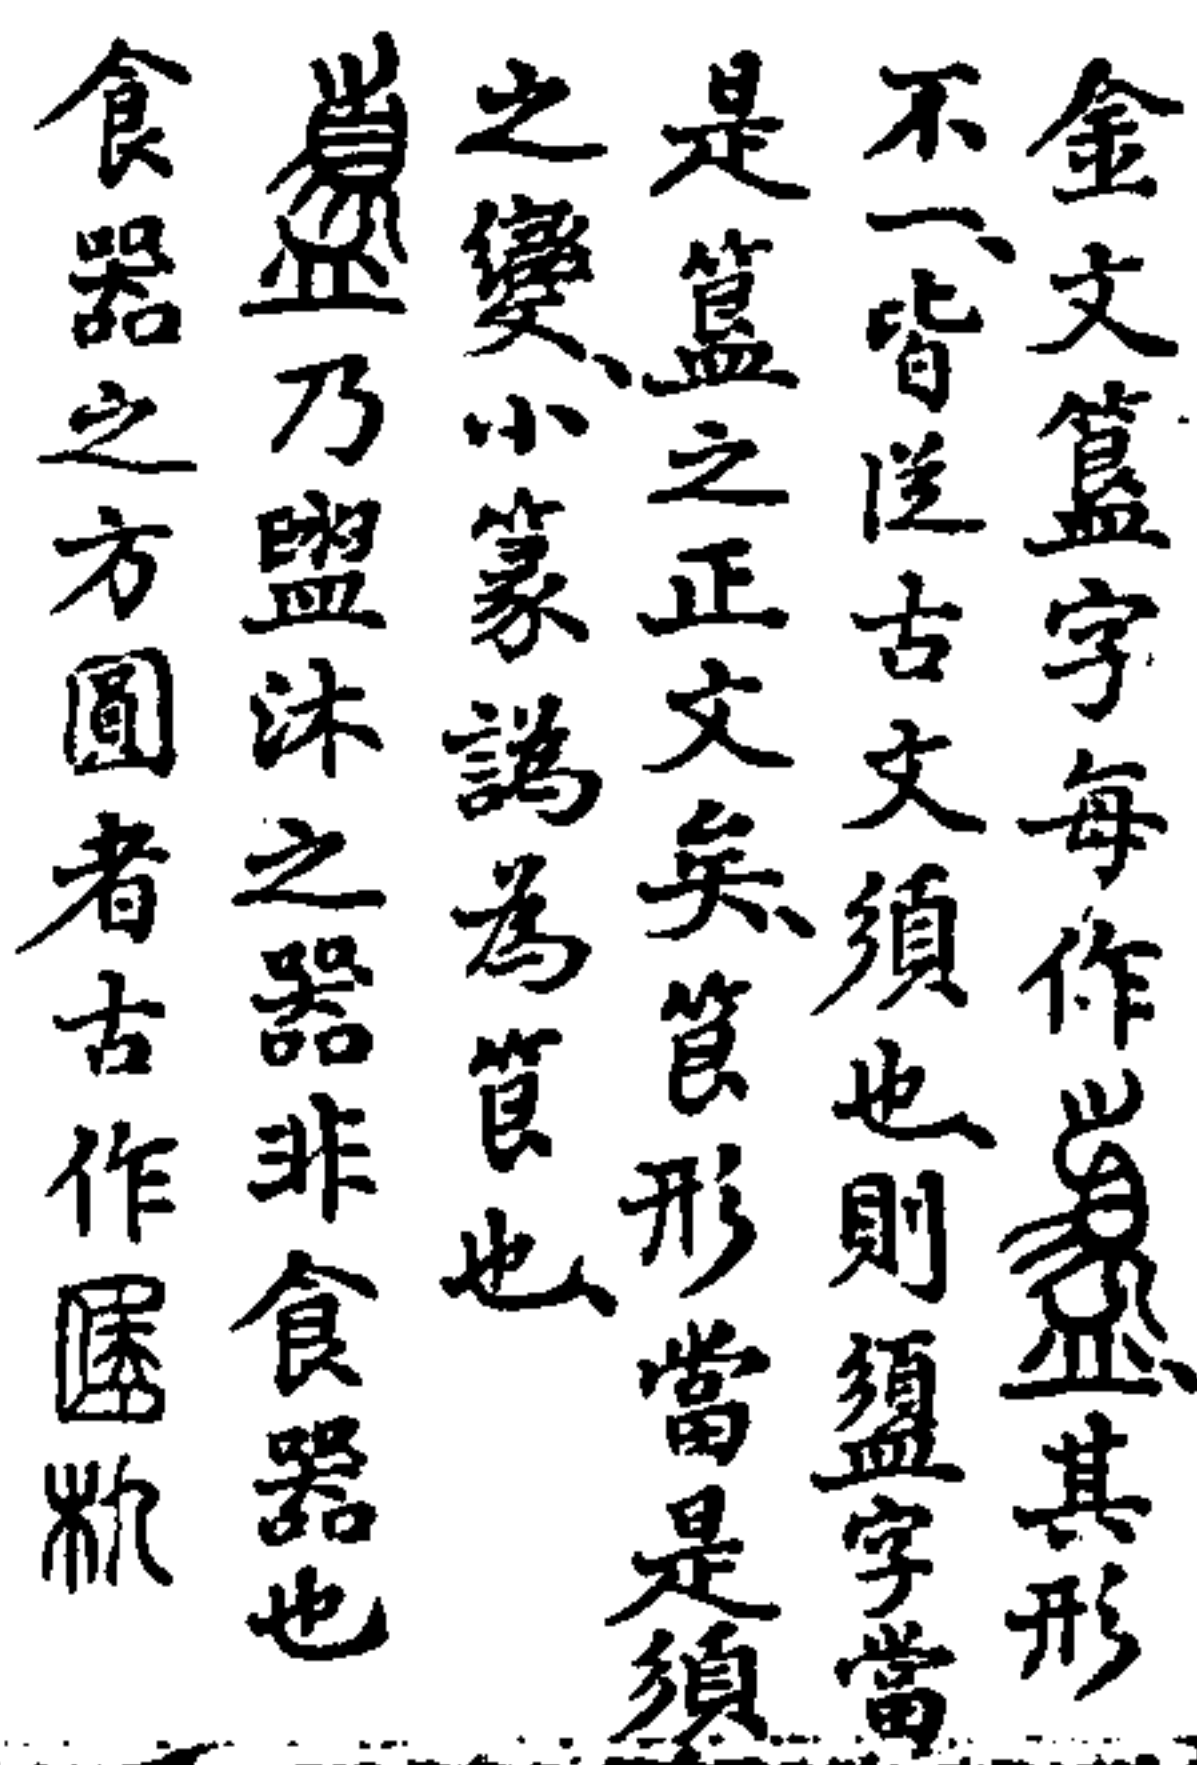 金文簋字每作其形
不一、皆從古文須也、則盨字當
是簋之正文矣、形當是須
之變、小篆譌為也、
乃盥沐之器非食器也
食器之方圓者古作朹